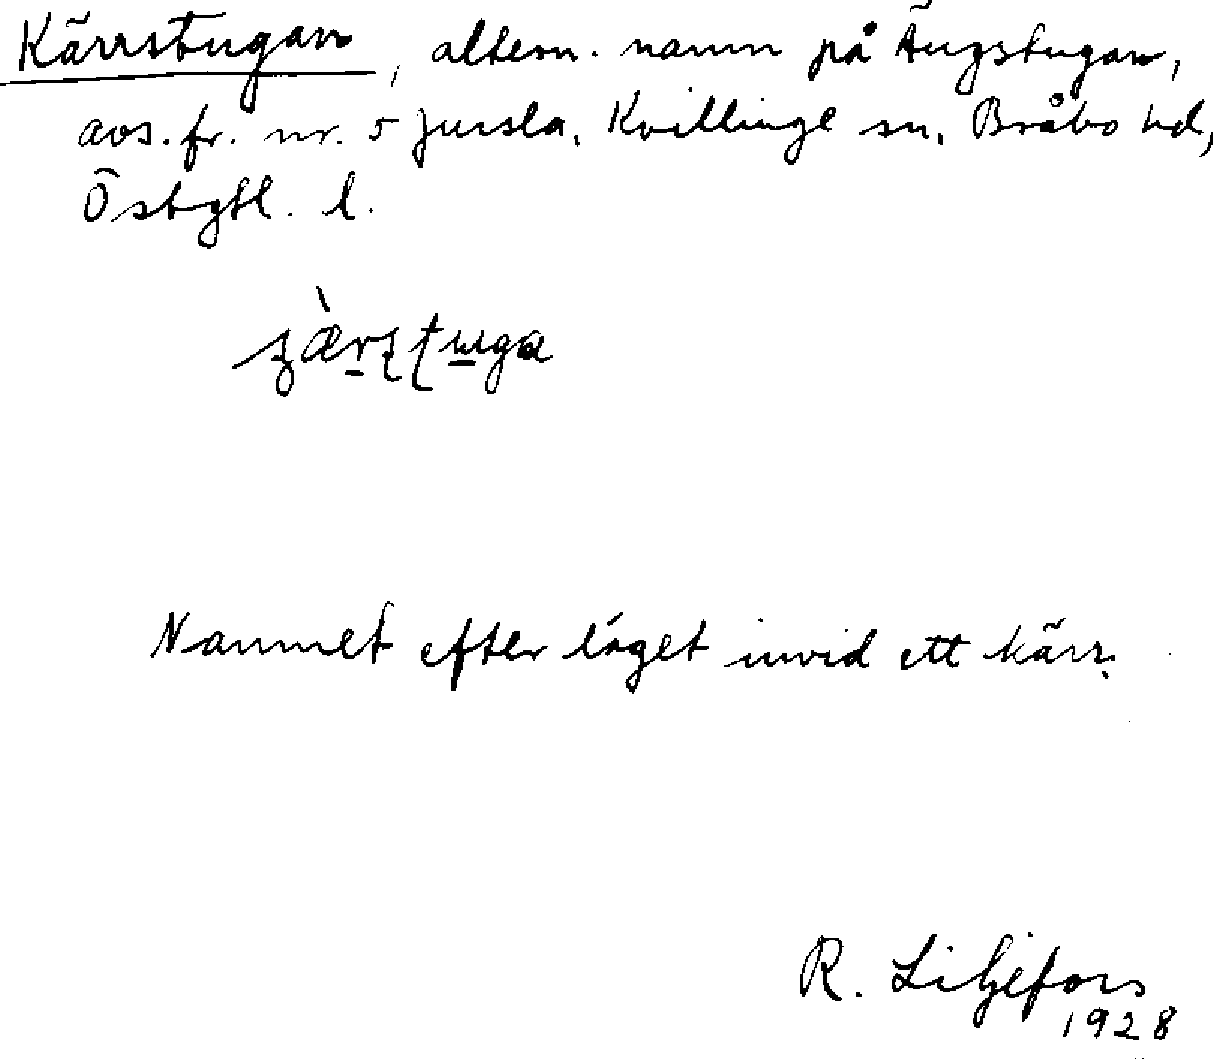 Kärrstugan, altern. namn på Ängstugan,
avs. fr. nr. 5 Jursla, Kvillinge sn, Bråbo hd,
Östgtl. l.
Namnet efter läget invid ett kärr.
R. Liljefors
1928